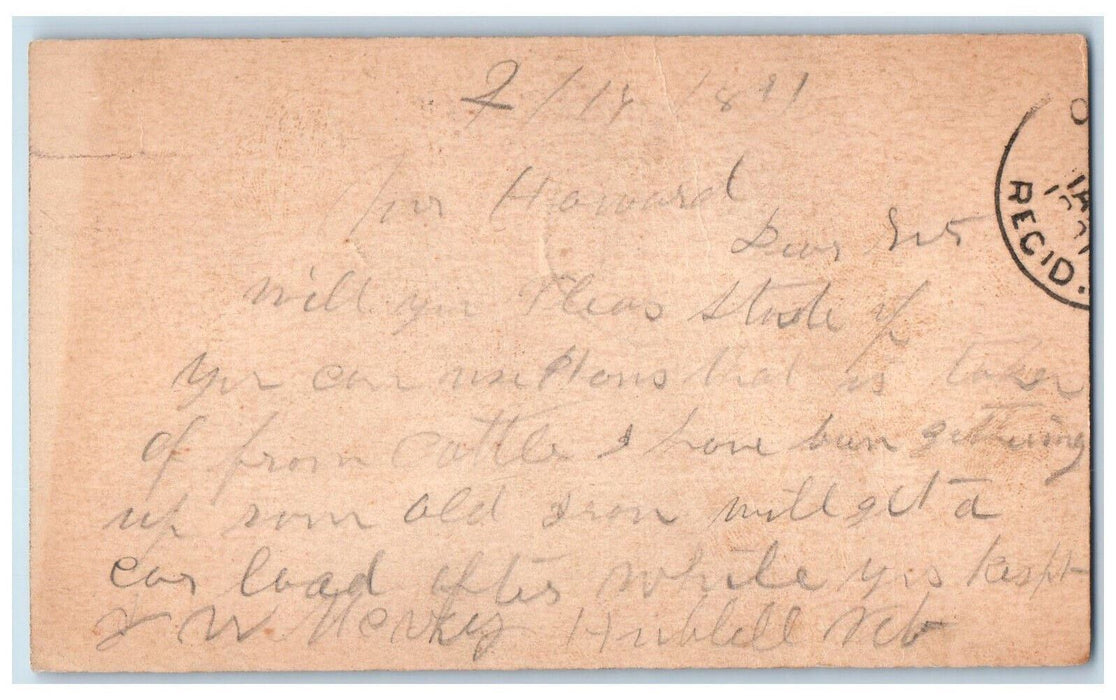 2/14 1891
Mr Howard
Dear Sir
Will you Pleas State if
you can use Horns that is taken
of from Cattle I have bin gethering
up som old Iron will get a
car load after while yrs Respt
J W Hubbell Neb
O
REC'D.